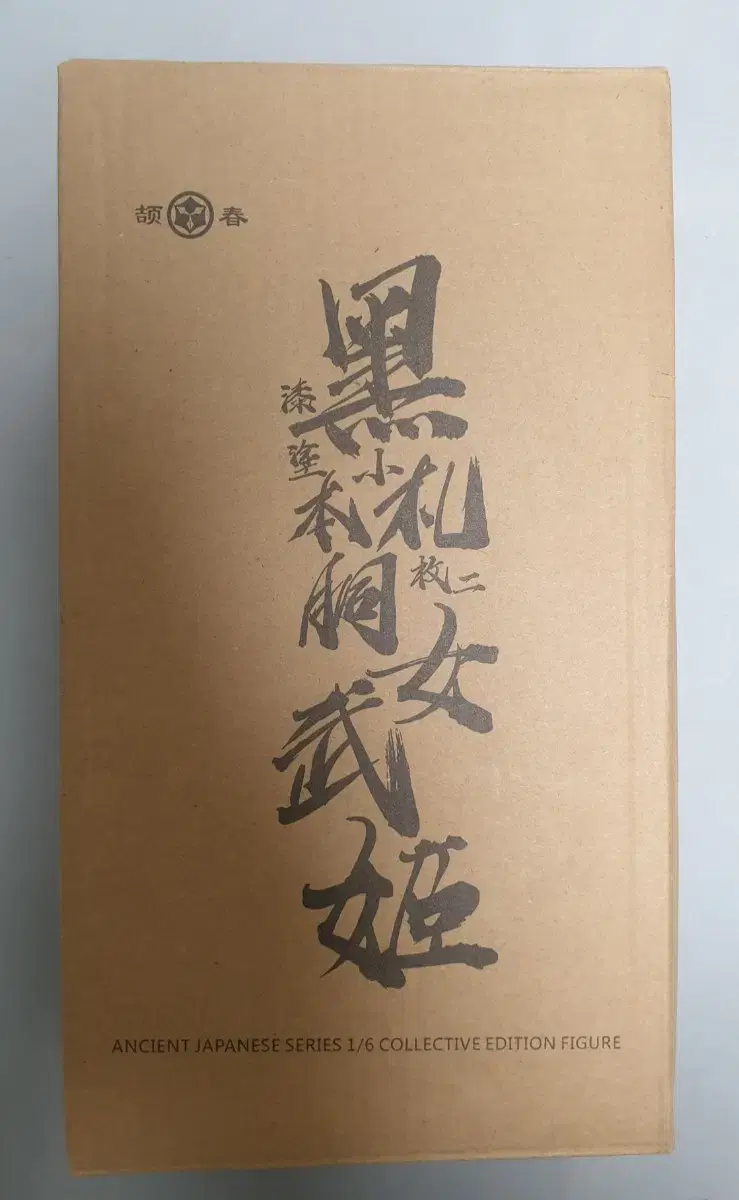 颉春
黑漆塗本小札二枚胴女武姫
ANCIENT JAPANESE SERIES 1/6 COLLECTIVE EDITION FIGURE